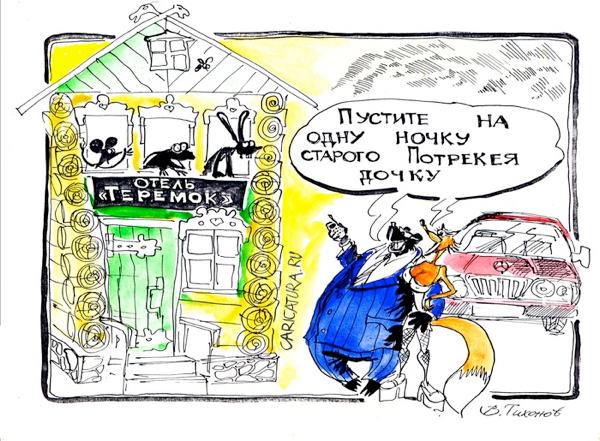 ПУСТИТЕ НА
ОДНУ НОЧКУ
СТАРОГО ПОТРЕКЕЯ
ДОЧКУ
ОТЕЛЬ
«ТЕРЕМОК»
CARICATURA.RU
В.Тихонов